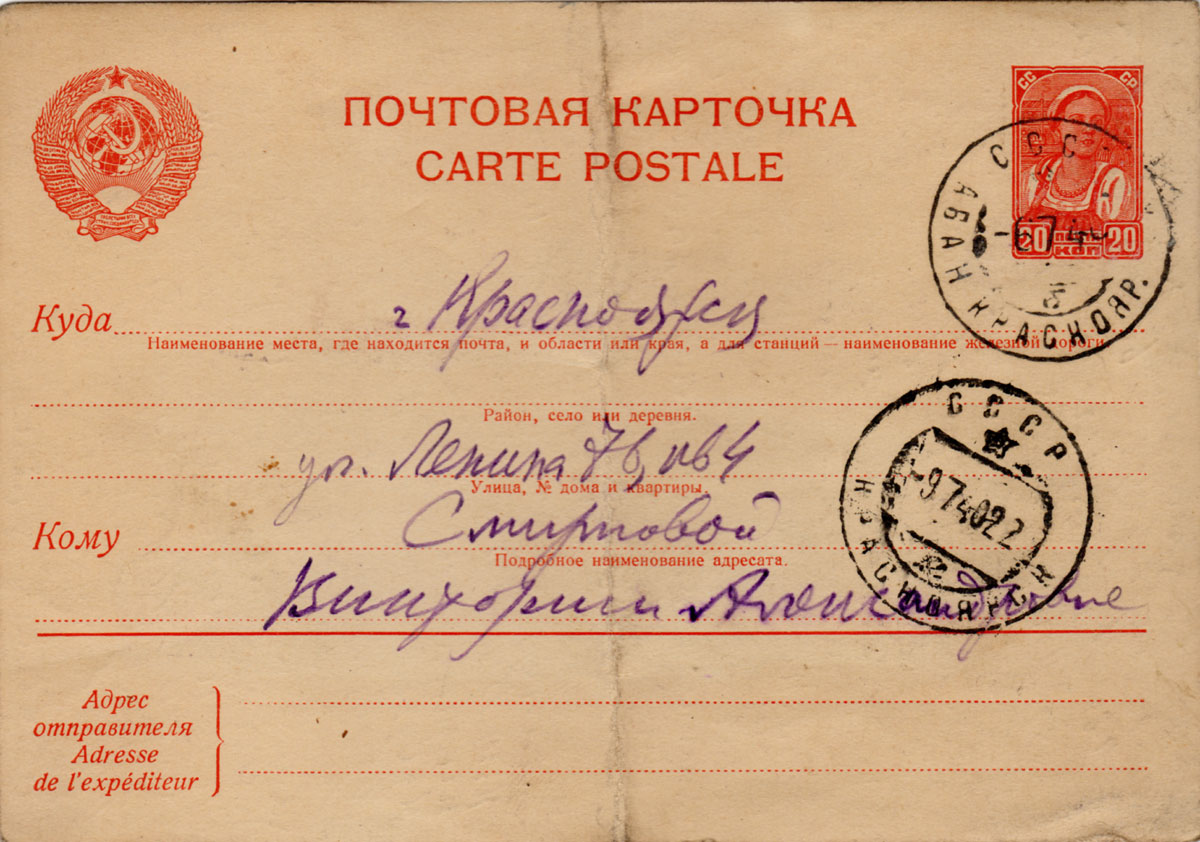 ПОЧТОВАЯ КАРТОЧКА
CARTE POSTALE
СС СР
20 КОП 20
СССР
АБАН КРАСНОЯР.
Куда г Красноярск
Наименование места, где находится почта, и области или края, а для станций — наименование железной дороги
Район, село или деревня.
ул. Ленина 78, кв 4
Улица, № дома и квартиры.
Кому Смирновой
Подробное наименование адресата.
Виктории Александровне
СССР
-9 7 40 22
КРАСНОЯРСК
Адрес
отправителя
Adresse
de l'expéditeur